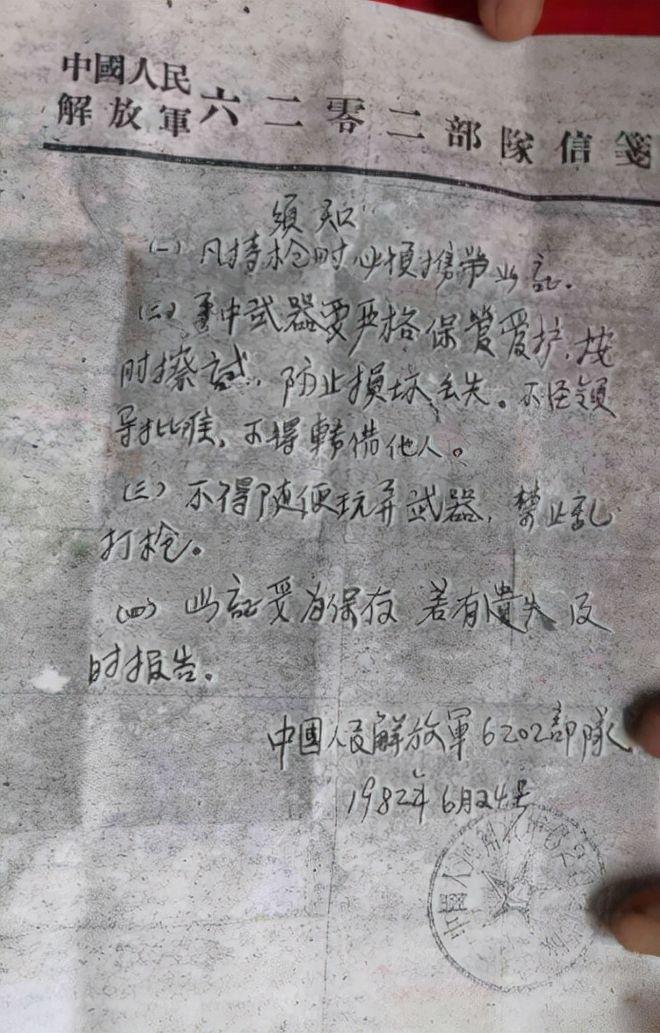 中國人民
解放軍六二零二部隊信箋
須知
(一)凡持枪时必須攜带此証。
(二)手中武器要严格保管爱护,按
时擦試,防止損坏丢失。不经領
导批准,不得轉借他人。
(三)不得随便玩弄武器,禁止乱
打枪。
(四)此証妥为保存 若有遺失 及
时报告。
中國人民解放軍6202部隊
1982年6月24号